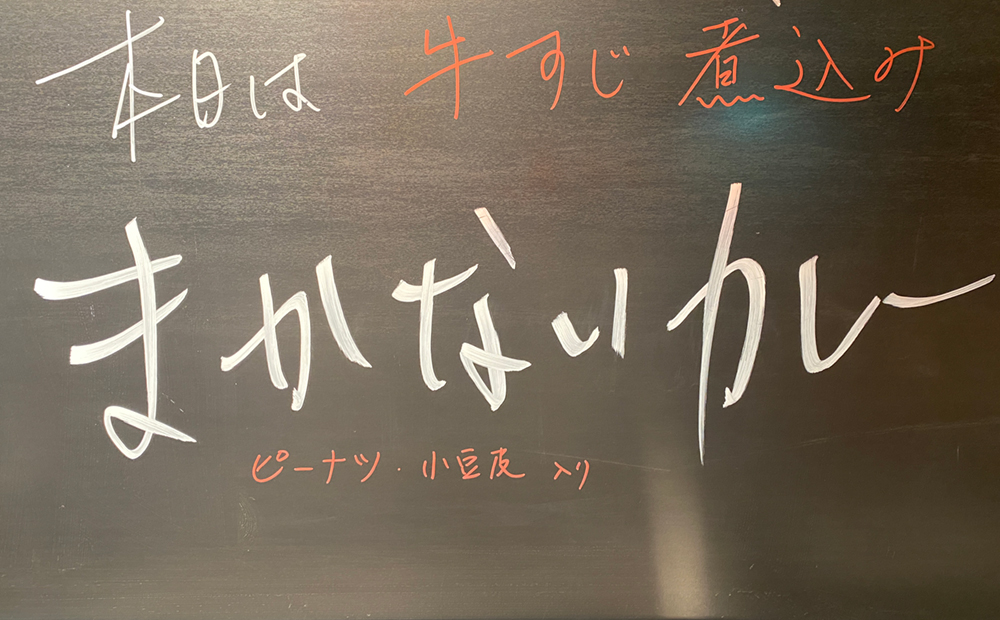 本日は 牛すじ 煮込み
まかないカレー
ピーナツ・小豆皮 入り